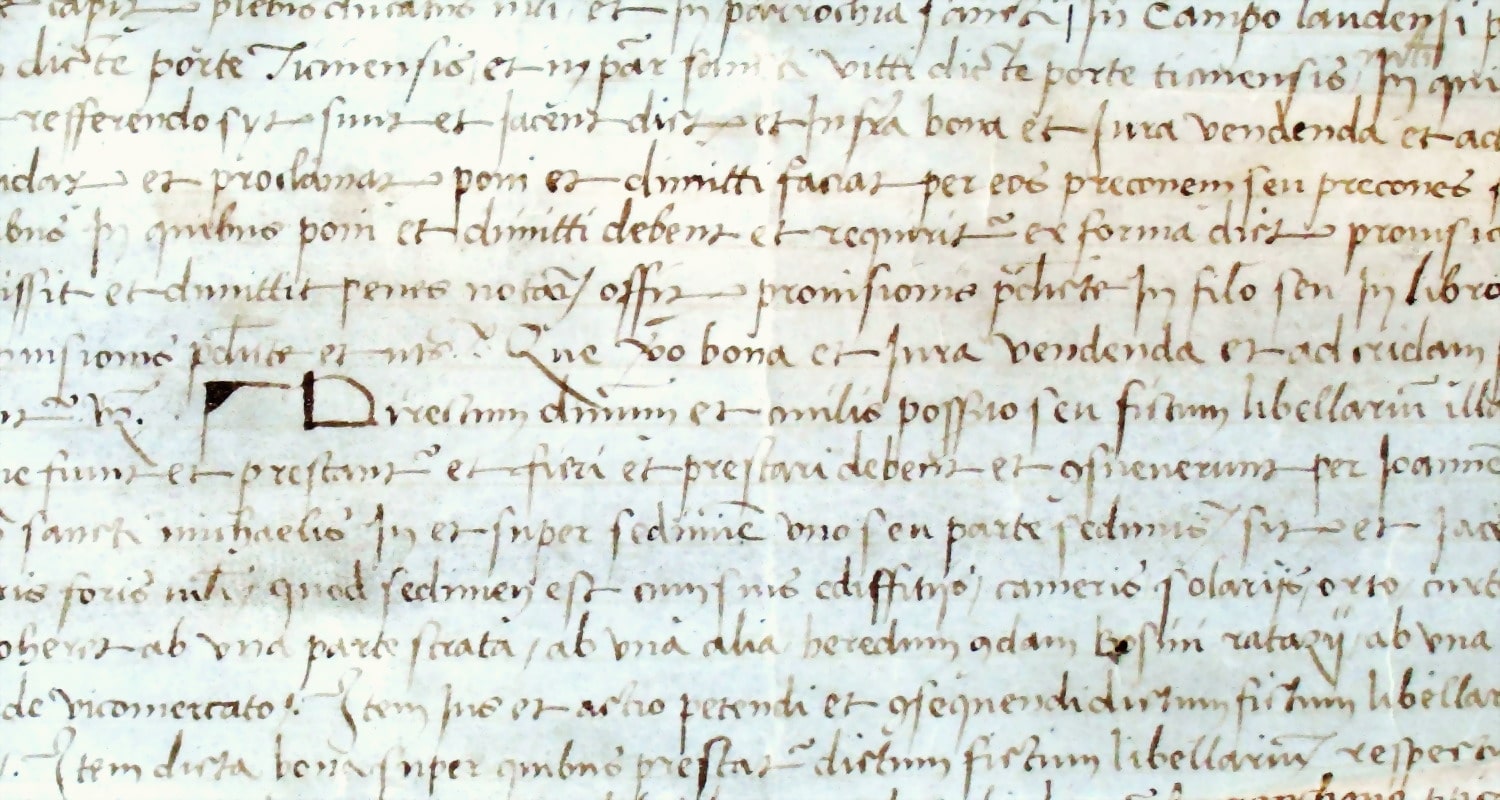 capit plebis ducatus mli, et In parrochia sancti In Campo laudensi
dicte porte Ticinensis, et in par sancti vitti dicte porte ticinensis, In qui
refferendo syt sunt et Jacent dict et Infra bona et Jura vendenda et ad
et proclamat poni et dimitti faciat per eos preconem seu precones
In quibus poni et dimitti debent et requirit ex forma dict provisio
issit et dimittit penes notar offit provisionis pdicte In filo seu In libro
pdicte et Que vo bona et Jura vendenda et ad cridam
vz. Dirrectum dnium et civilis possio seu fictum libellariu illo
fiunt et prestant et fieri et prestari debent et gsueverunt per Joanne
sancti michaelis In et super sedimine uno seu parte sediminis sit et Jace
foris mli, quod sedimen est cum suis ediffitijs, cameris solarijs, orto, curte
coheret ab una parte strata, ab una alia heredum qdam ratazij, ab una
de vicomercato. Item Jus et actio petendi et gsequendi dictum fictum libellar
Item dicta bona super quibus prestat dictum fictum libellariu respect